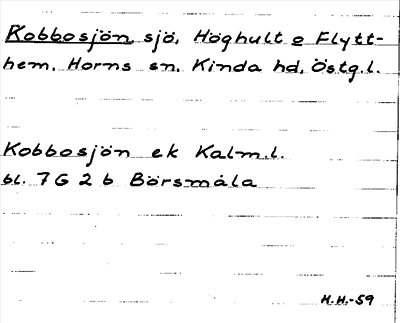 Kobbosjön, sjö, Höghult o Flytt-
hem, Horns sn, Kinda hd, Östg.l.
Kobbosjön ek Kalm.l.
bl. 7 G 2 b Börsmåla
H.H.-59